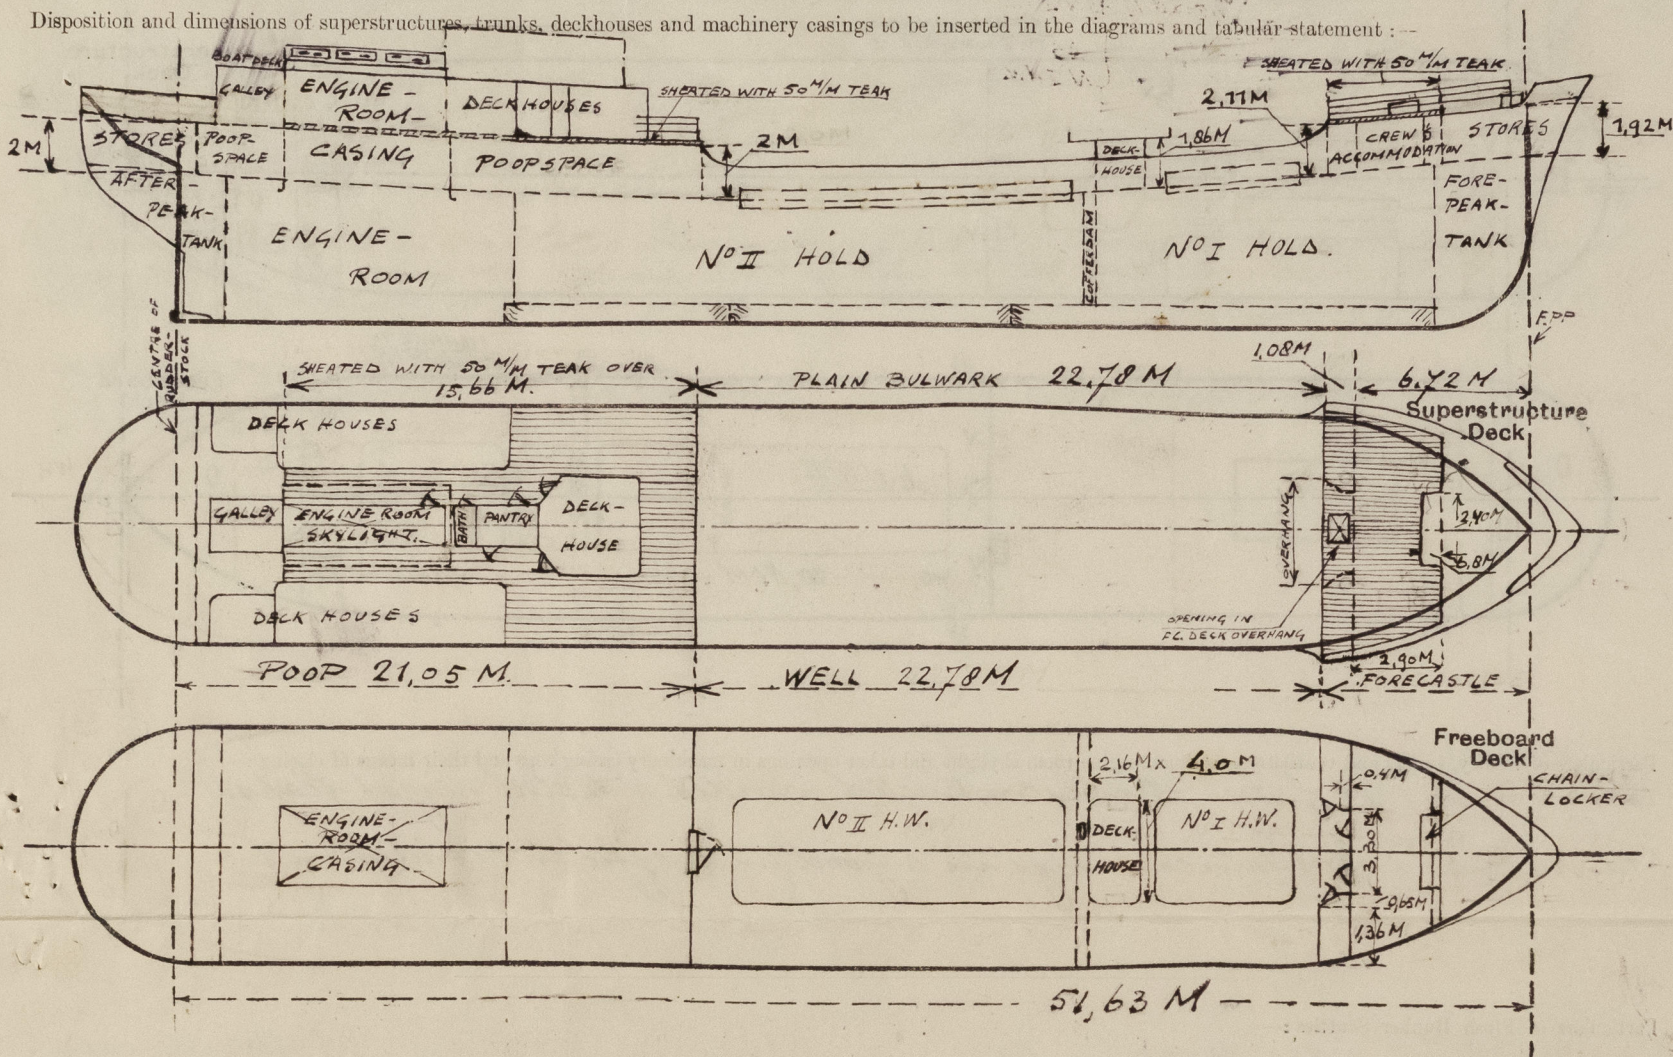 Disposition and dimensions of superstructures, trunks, deckhouses and machinery casings to be inserted in the diagrams and tabular statement :—
BOAT DECK
GALLEY
ENGINE-
ROOM-
CASING
DECKHOUSES
SHEATED WITH 50 M/M TEAK
SHEATED WITH 50 M/M TEAK
2M
STORES
POOP-
SPACE
POOPSPACE
2M
2,11M
1,86M
DECK-
HOUSE
CREW'S
ACCOMMODATION
STORES
1,92M
AFTER-
PEAK-
TANK
ENGINE-
ROOM
No II HOLD
COFFERDAM
No I HOLD.
FORE-
PEAK-
TANK
F.P.P
CENTRE OF
RUDDER-
STOCK
SHEATED WITH 50 M/M TEAK OVER
15,66 M.
PLAIN BULWARK 22,78 M
1,08M
6,72 M
Superstructure
Deck
DECK HOUSES
GALLEY
ENGINE ROOM
SKYLIGHT.
BATH
PANTRY
DECK-
HOUSE
OVERHANG
2,40M
6,8M
DECK HOUSES
OPENING IN
F.C. DECK OVERHANG
2,90M
POOP 21,05 M.
WELL 22,78M
FORECASTLE
Freeboard
Deck
2,16M x 4,0M
0,4M
CHAIN-
LOCKER
ENGINE-
ROOM-
CASING
No II H.W.
DECK-
HOUSE
No I H.W.
3,30M
0,65M
1,36M
51,63 M